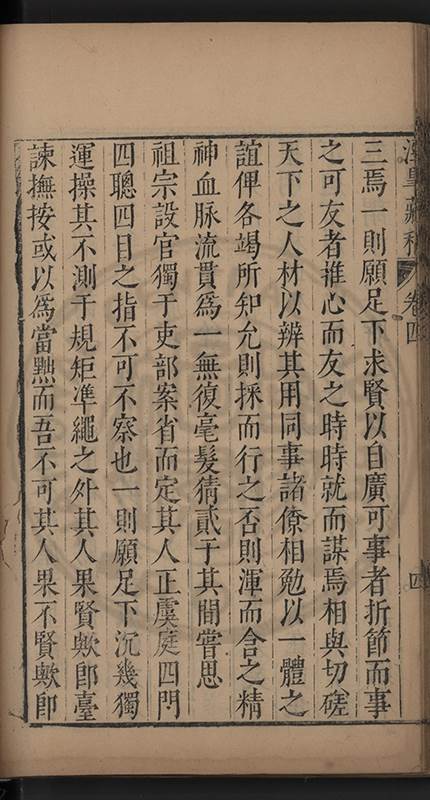 涇皋藏稿 卷四
四
三焉一則願足下求賢以自廣可事者折節而事
之可友者推心而友之時時就而謀焉相與切磋
天下之人材以辨其用同事諸僚相勉以一體之
誼俾各竭所知允則採而行之否則渾而含之精
神血脉流貫爲一無復毫髮猜貳于其間嘗思
祖宗設官獨于吏部案省而定其人正虞庭四門
四聰四目之指不可不察也一則願足下沉幾獨
運操其不測于規矩準繩之外其人果賢歟卽臺
諫撫按或以爲當黜而吾不可其人果不賢歟卽